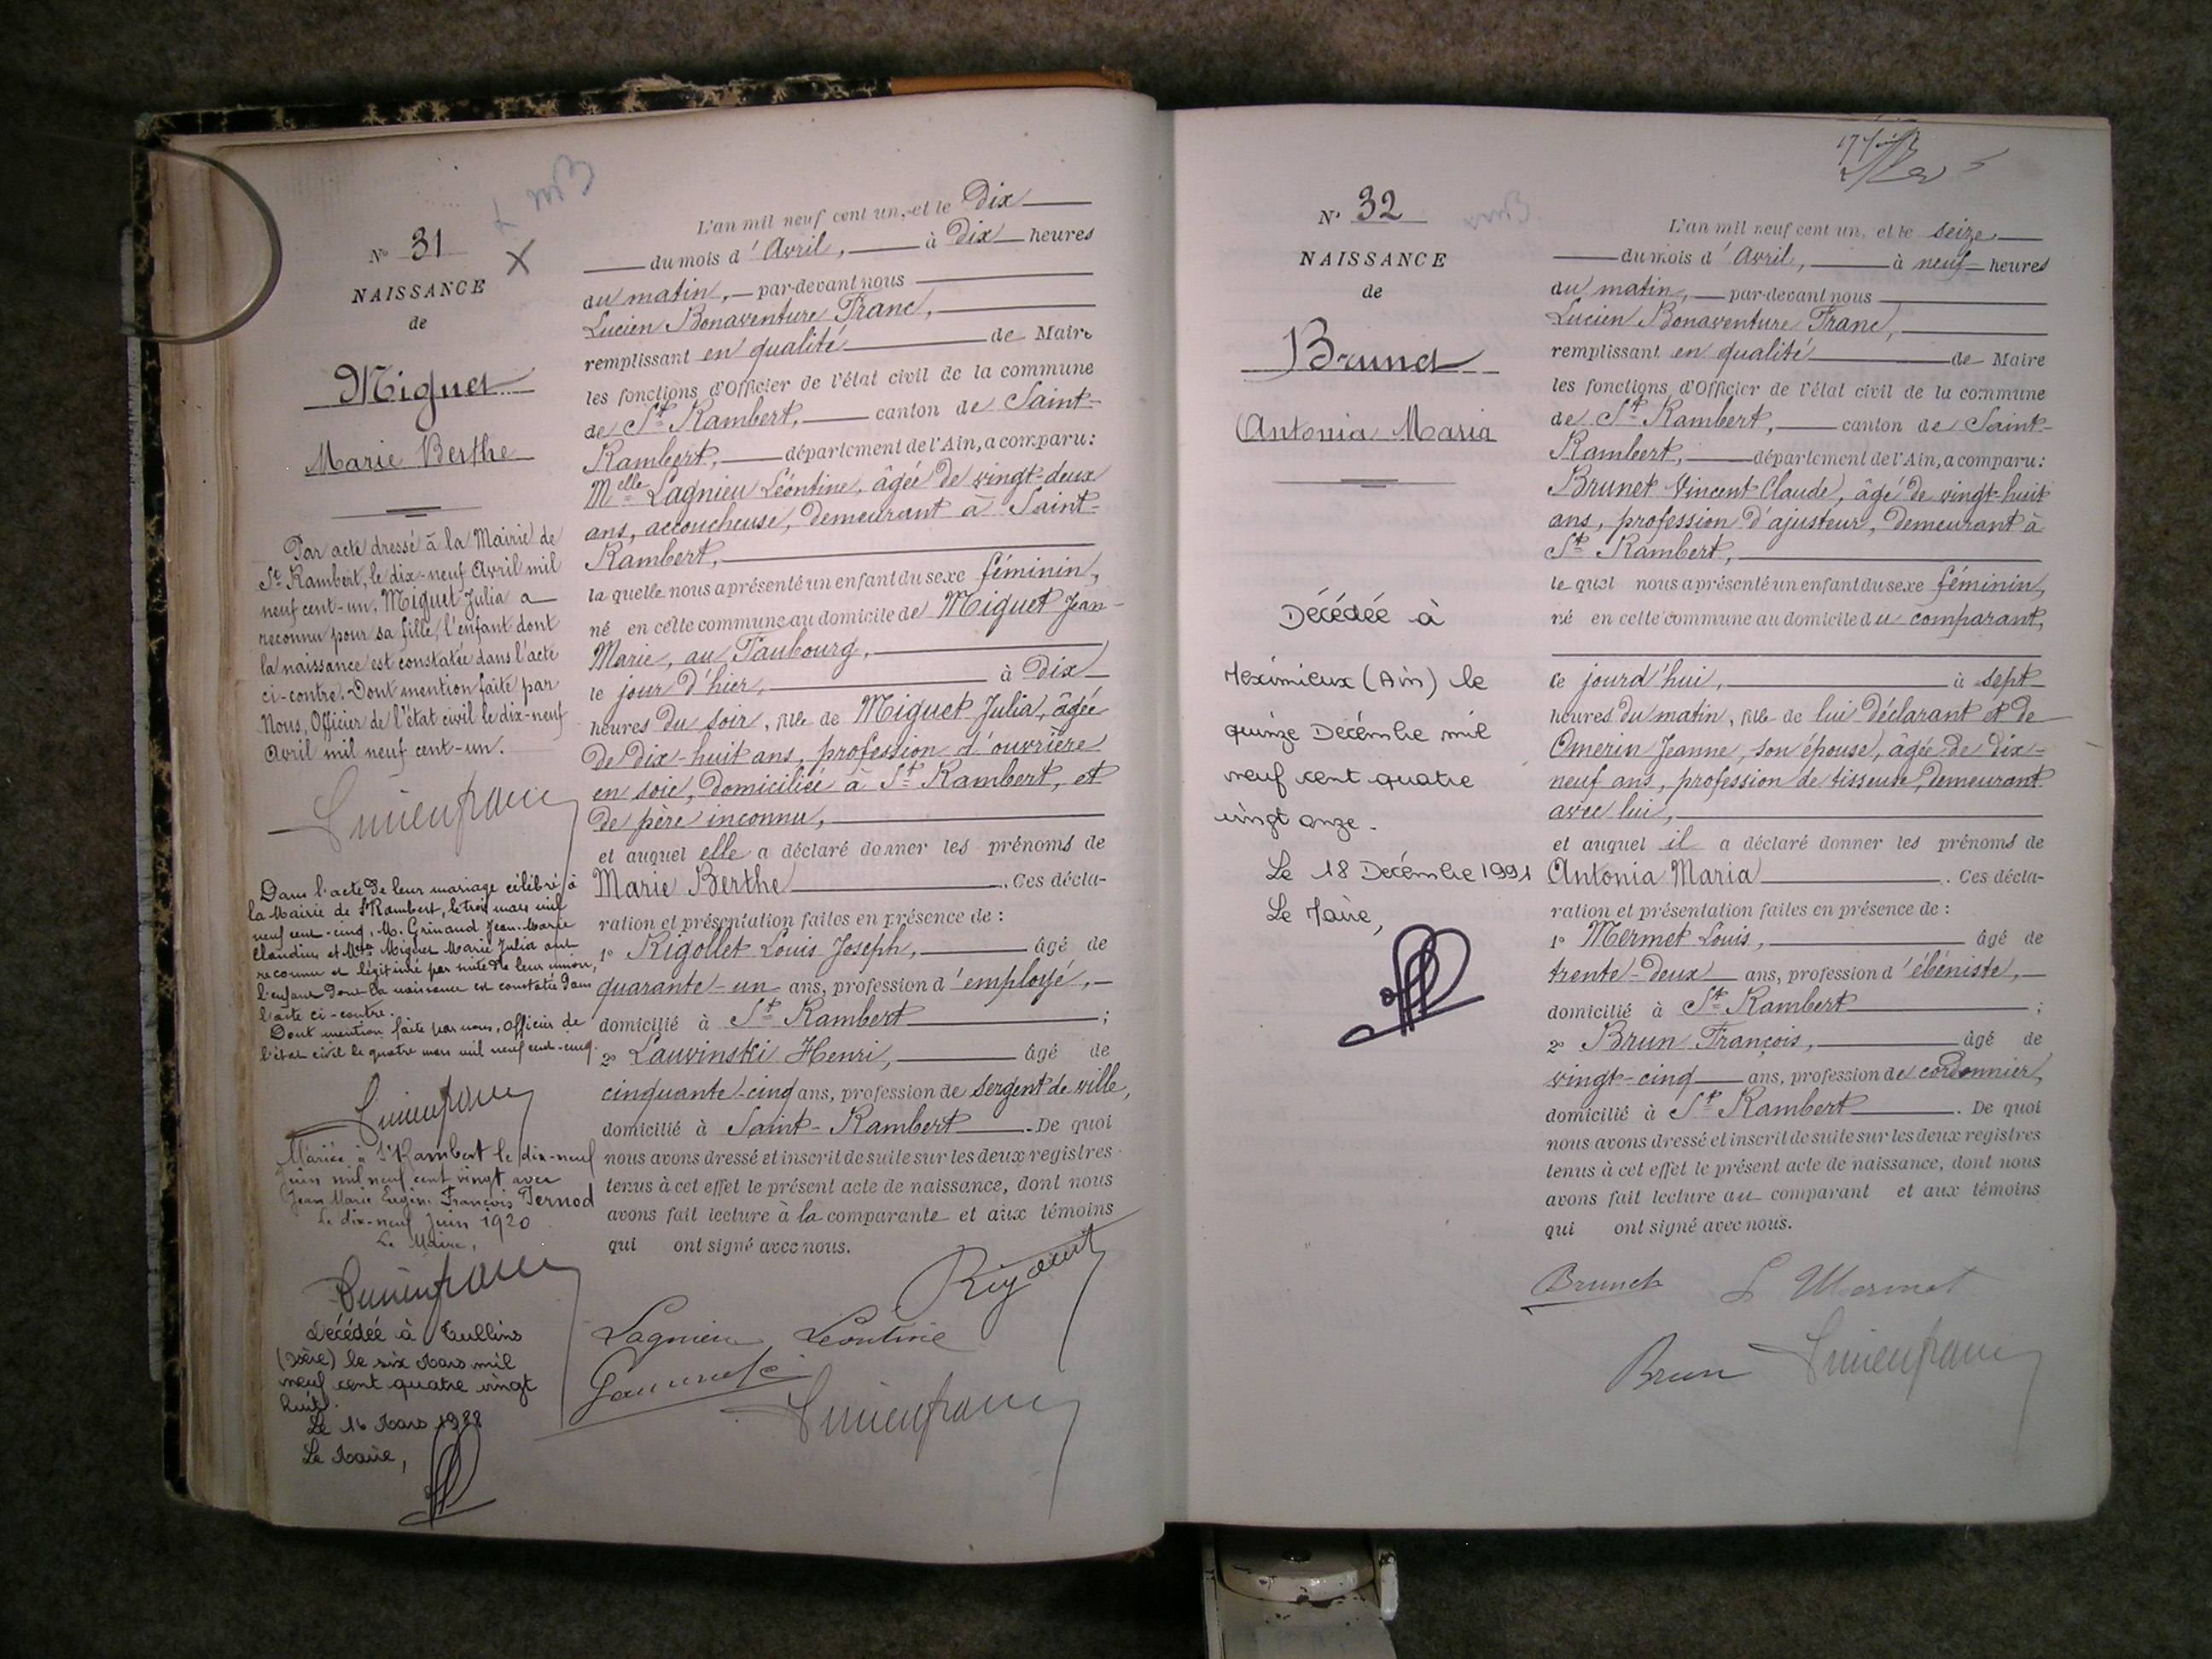 N° 31
NAISSANCE
de
Miguet
Marie Berthe
Par acte dressé à la Mairie de
St Rambert, le dix-neuf Avril mil
neuf cent-un, Miguet Julia a
reconnu pour sa fille, l'enfant dont
la naissance est constatée dans l'acte
ci-contre. Dont mention faite par
Nous, Officier de l'état civil le dix-neuf
Avril mil neuf cent-un.
Lucien franc
Dans l'acte de leur mariage célébré à
la Mairie de St Rambert, le trois mars mil
neuf cent-cinq, M. Grinand Jean-Marie
Claudius et Miguet Marie Julia ont
reconnu et légitimé par suite de leur union,
l'enfant dont la naissance est constatée dans
l'acte ci-contre.
Dont mention faite par nous, Officier de
l'état civil le quatre mars mil neuf cent-cinq.
Lucien franc
Mariée à St Rambert le dix-neuf
Juin mil neuf cent vingt avec
Jean Marie Eugène François Pernod
Le dix-neuf Juin 1920
Le Maire,
Lucien franc
Décédée à Tullins
(Isère) le six Mars mil
neuf cent quatre vingt
huit.
Le 16 Mars 1988
Le Maire,
L'an mil neuf cent un, et le Dix
du mois d'Avril, à Dix heures
du matin, par-devant nous
Lucien Bonaventure Franc,
remplissant en qualité de Maire
les fonctions d'Officier de l'état civil de la commune
de St Rambert, canton de Saint-
Rambert, département de l'Ain, a comparu:
Melle Lagnieu Léontine, âgée de vingt-deux
ans, accoucheuse, demeurant à Saint-
Rambert,
la quelle nous a présenté un enfant du sexe féminin,
né en cette commune au domicile de Miguet Jean-
Marie, au Faubourg,
le jour d'hier, à Dix
heures du soir, fille de Miguet Julia, âgée
de dix-huit ans, profession d'ouvrière
en soie, domiciliée à St Rambert, et
de père inconnu,
et auquel elle a déclaré donner les prénoms de
Marie Berthe. Ces décla-
ration et présentation faites en présence de :
1° Rigollet Louis Joseph, âgé de
quarante-un ans, profession d'employé,
domicilié à St Rambert ;
2° Lauvinski Henri, âgé de
cinquante-cinq ans, profession de sergent de ville,
domicilié à Saint-Rambert. De quoi
nous avons dressé et inscrit de suite sur les deux registres
tenus à cet effet le présent acte de naissance, dont nous
avons fait lecture à la comparante et aux témoins
qui ont signé avec nous.
Lagnieu Léontine
Lucien franc
N° 32
NAISSANCE
de
Brunet
Antonia Maria
Décédée à
Meximieux (Ain) le
quinze Décembre mil
neuf cent quatre
vingt onze.
Le 18 Décembre 1991
Le Maire,
L'an mil neuf cent un, et le seize
du mois d'Avril, à neuf heures
du matin, par-devant nous
Lucien Bonaventure Franc,
remplissant en qualité de Maire
les fonctions d'Officier de l'état civil de la commune
de St Rambert, canton de Saint-
Rambert, département de l'Ain, a comparu:
Brunet Vincent Claude, âgé de vingt-huit
ans, profession d'ajusteur, demeurant à
St Rambert,
le quel nous a présenté un enfant du sexe féminin,
né en cette commune au domicile du comparant,
ce jourd'hui, à sept
heures du matin, fille de lui déclarant et de
Omerin Jeanne, son épouse, âgée de dix-
neuf ans, profession de tisseuse, demeurant
avec lui,
et auquel il a déclaré donner les prénoms de
Antonia Maria. Ces décla-
ration et présentation faites en présence de :
1° Mermet Louis, âgé de
trente-deux ans, profession d'ébéniste,
domicilié à St Rambert ;
2° Brun François, âgé de
vingt-cinq ans, profession de cordonnier,
domicilié à St Rambert. De quoi
nous avons dressé et inscrit de suite sur les deux registres
tenus à cet effet le présent acte de naissance, dont nous
avons fait lecture au comparant et aux témoins
qui ont signé avec nous.
Brunet L Mermet
Brun Lucien franc